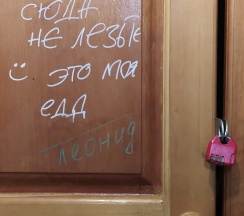 сюдА
не лезьте
☺ это моя
едд
леонид